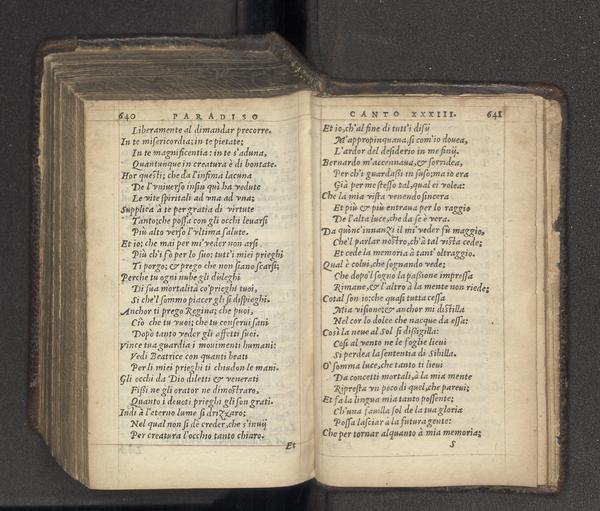 640 PARADISO
Liberamente al dimandar precorre.
In te misericordia; in te pietate;
In te magnificentia: in te s'aduna,
Quantunque in creatura è di bontate.
Hor questi; che da l'infima lacuna
De l'vniuerso insin quà ha vedute
Le vite spiritali ad vna ad vna;
Supplica à te per gratia di virtute
Tanto; che possa con gli occhi leuarsi
Più alto verso l'vltima salute.
Et io; che mai per mi' veder non arsi
Più ch'i fò per lo suo; tutt'i miei prieghi
Ti porgo; & prego che non sian scarsi;
Perche tu ogni nube gli disleghi
Di sua mortalità co' prieghi tuoi,
Si che'l sommo piacer gli si dispieghi.
Anchor ti prego Regina; che puoi,
Ciò che tu vuoi; che tu conserui sani
Dopo tanto veder gli affetti suoi.
Vinca tua guardia i mouimenti humani:
Vedi Beatrice con quanti beati
Per li miei prieghi ti chiudon le mani.
Gli occhi da Dio diletti & venerati
Fissi ne gli orator ne dimostraro,
Quanto i deuoti prieghi gli son grati.
Indi à l'eterno lume si drizzaro;
Nel qual non si dè creder, che s'inuij
Per creatura l'occhio tanto chiaro.
Et
CANTO XXXIII. 641
Et io, ch'al fine di tutt'i disij
M'appropinquaua, si com'io douea,
L'ardor del desiderio in me finij.
Bernardo m'accennaua, & sorridea,
Per ch'i guardassi in suso; ma io era
Già per me stesso tal, qual ei volea:
Che la mia vista venendo sincera
Et più & più entraua per lo raggio
De l'alta luce, che da se è vera.
Da quinc'innanzi il mi' veder fù maggio,
Che'l parlar nostro, ch'à tal vista cede;
Et cede la memoria à tant' oltraggio.
Qual è colui, che sognando vede;
Che dopo'l sogno la passione impressa
Rimane, & l'altro à la mente non riede;
Cotal son io: che quasi tutta cessa
Mia visione; & anchor mi distilla
Nel cor lo dolce che nacque da essa:
Così la neue al Sol si disigilla:
Così al vento ne le foglie lieui
Si perdea la sententia di Sibilla.
O' somma luce, che tanto ti lieui
Da concetti mortali, à la mia mente
Ripresta vn poco di quel, che pareui;
Et fa la lingua mia tanto possente;
Ch'una fauilla sol de la tua gloria
Possa lasciar à la futura gente:
Che per tornar alquanto à mia memoria;
S